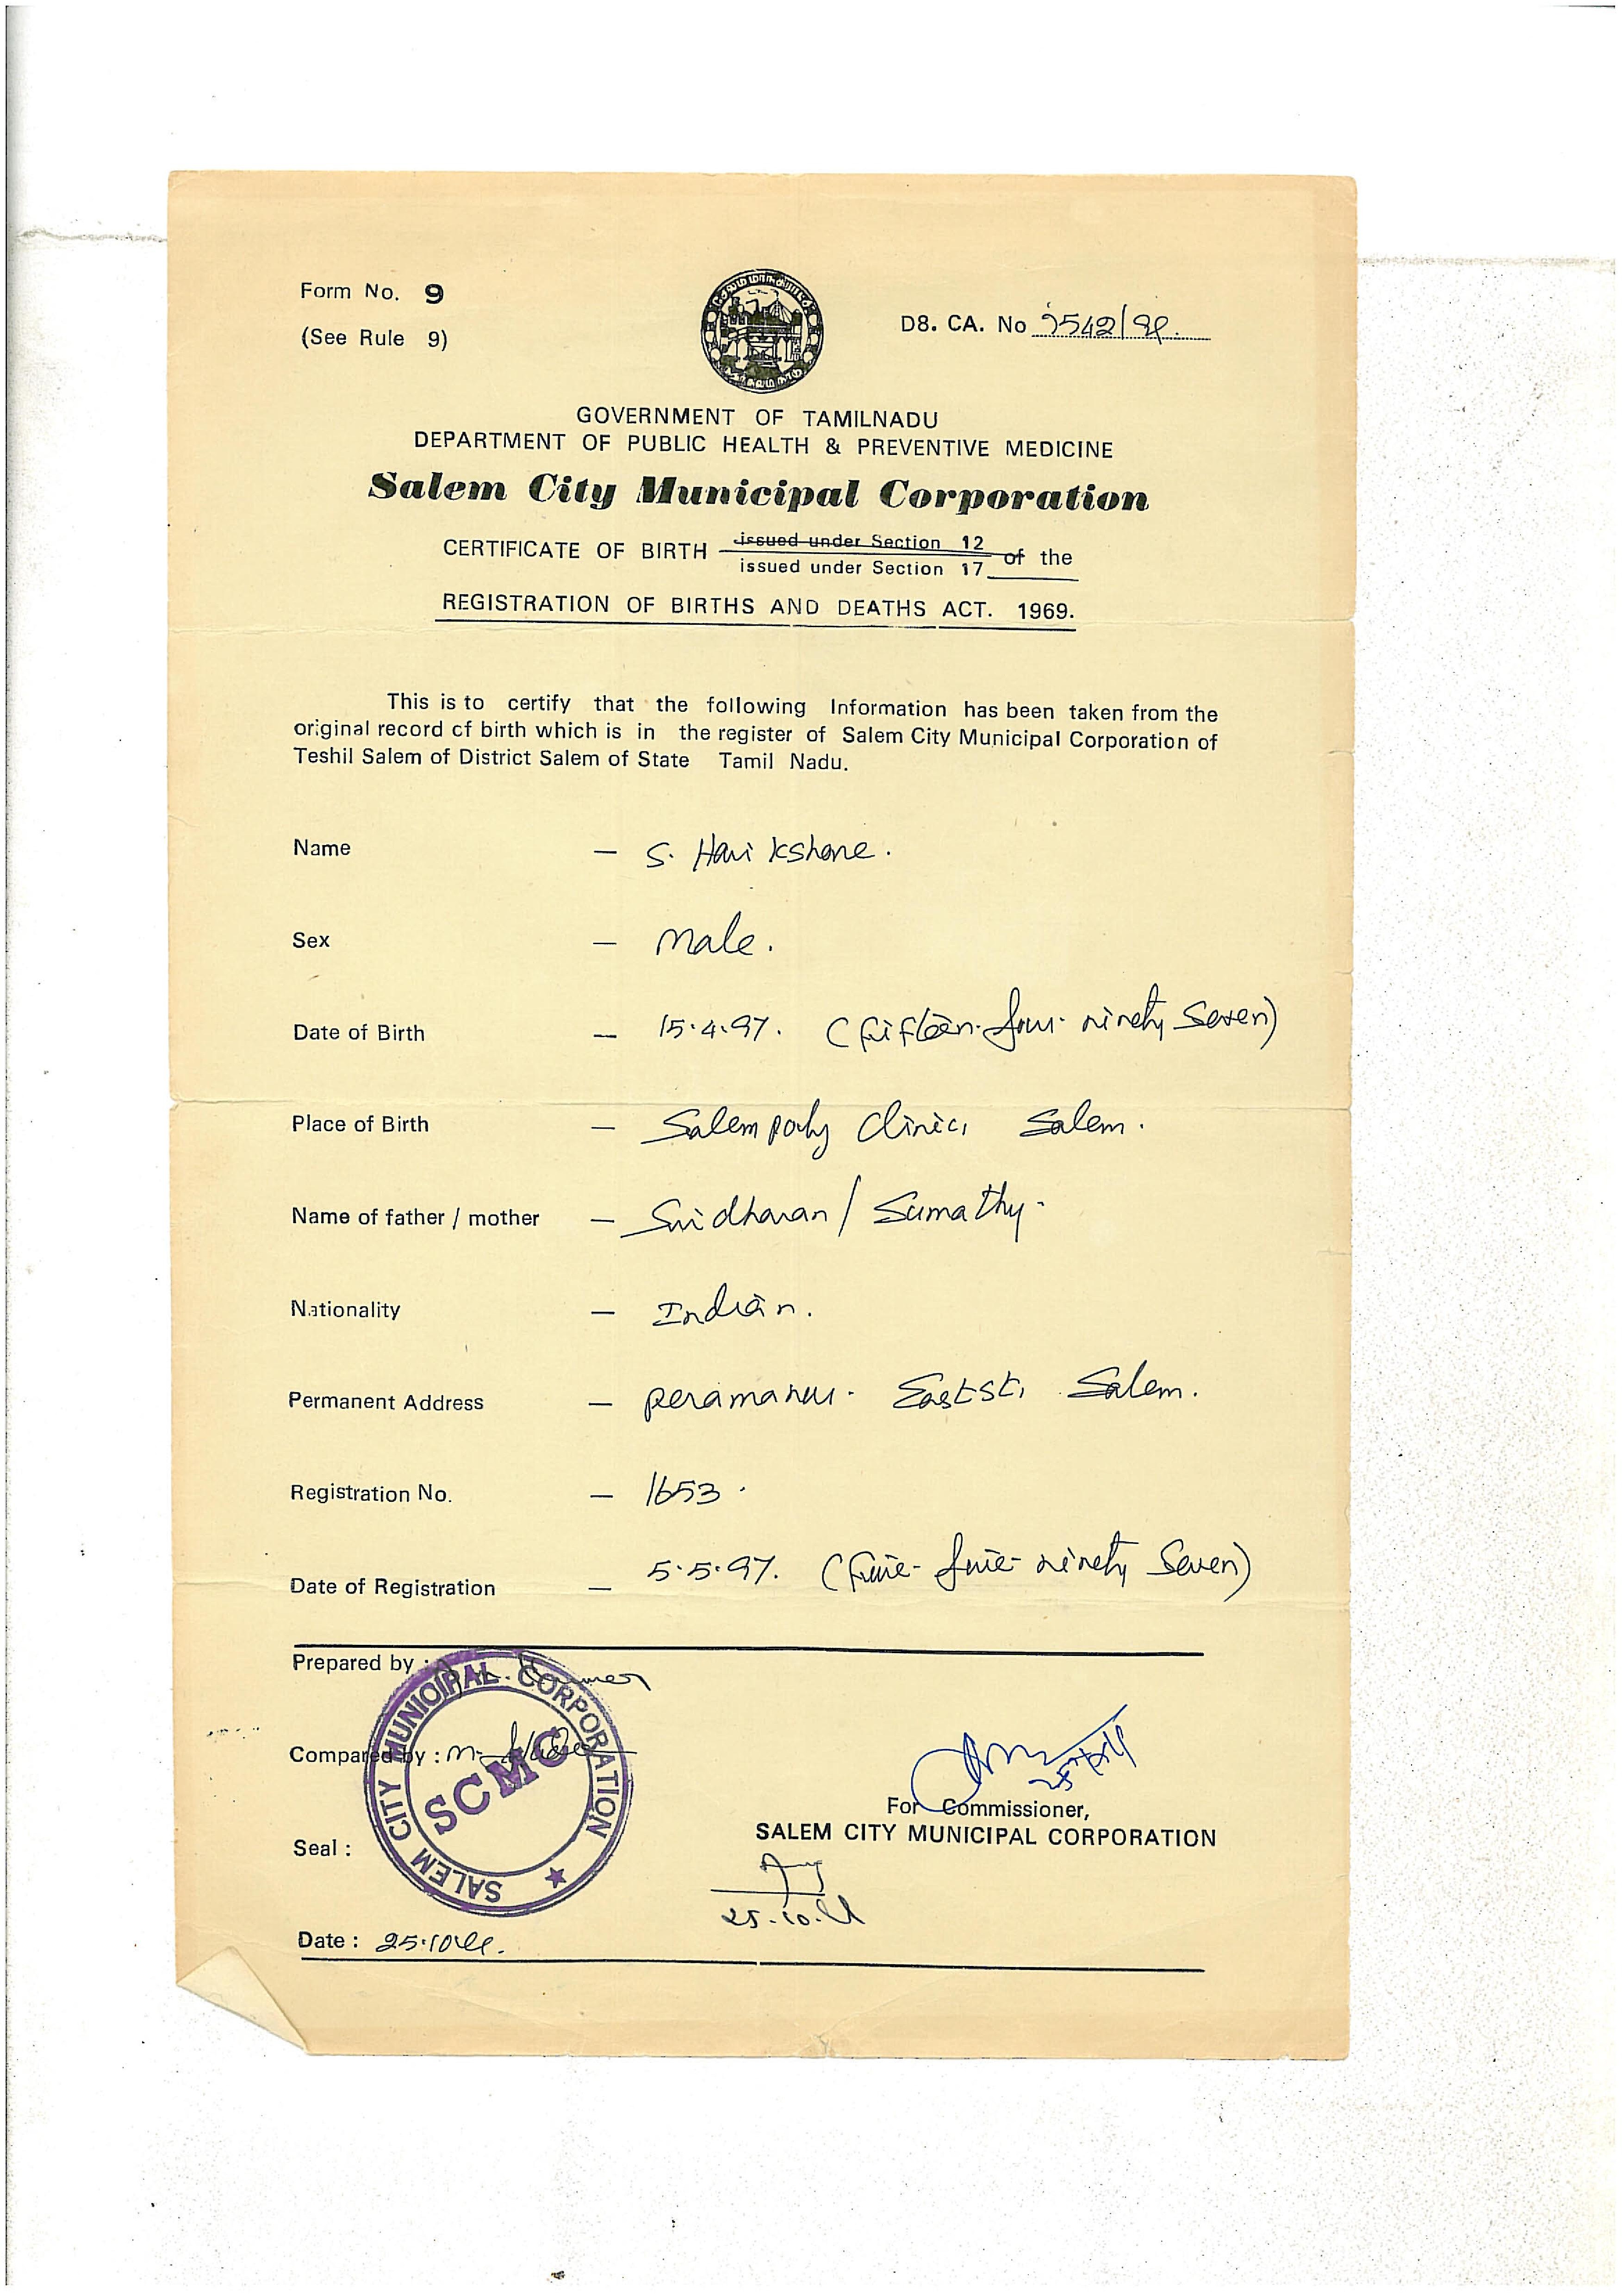 Form No. 9
(See Rule 9)
D8. CA. No 9542/
GOVERNMENT OF TAMILNADU
DEPARTMENT OF PUBLIC HEALTH & PREVENTIVE MEDICINE
Salem City Municipal Corporation
CERTIFICATE OF BIRTH issued under Section 12
issued under Section 17 of the
REGISTRATION OF BIRTHS AND DEATHS ACT. 1969.
This is to certify that the following Information has been taken from the
original record of birth which is in the register of Salem City Municipal Corporation of
Teshil Salem of District Salem of State Tamil Nadu.
Name – S. Hari Kshore.
Sex – Male.
Date of Birth – 15.4.97. (Fifteen-four-ninety Seven)
Place of Birth – Salem poly Clinic, Salem.
Name of father / mother – Sridharan / Sumathy.
Nationality – Indian.
Permanent Address – peramanur. East St, Salem.
Registration No. – 1653.
Date of Registration – 5.5.97. (Five-five-ninety Seven)
Prepared by :
Compared by : M.
SALEM CITY MUNICIPAL CORPORATION
SCMC
For Commissioner,
SALEM CITY MUNICIPAL CORPORATION
Seal :
25.10.
Date : 25.10.